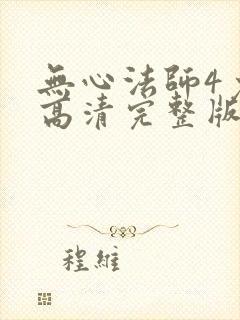 無心法師4
高清完整版
程維